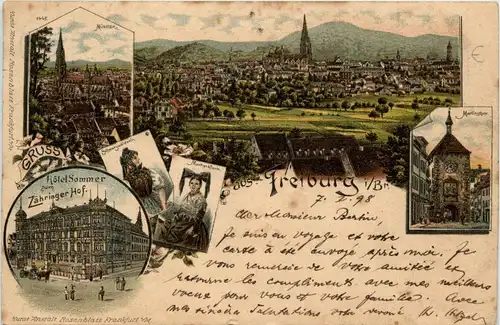 Münster.
Martinstor.
GRUSS
aus Freiburg i/Br.
Hôtel Sommer
zum
Zähringer Hof.
Kunst Anstalt Rosenblatt Frankfurt a/M.
Kunst Anstalt Rosenblatt Frankfurt a/M.
7. 98
Cher Monsieur
Je suis en voyage et votre
carte a été envoyé après moi. Je
vous remercie de votre amitiée et
retourne les compliments avec mes meilleurs
voeux pour vous et votre famille. Avec
mes sincères salutations votre